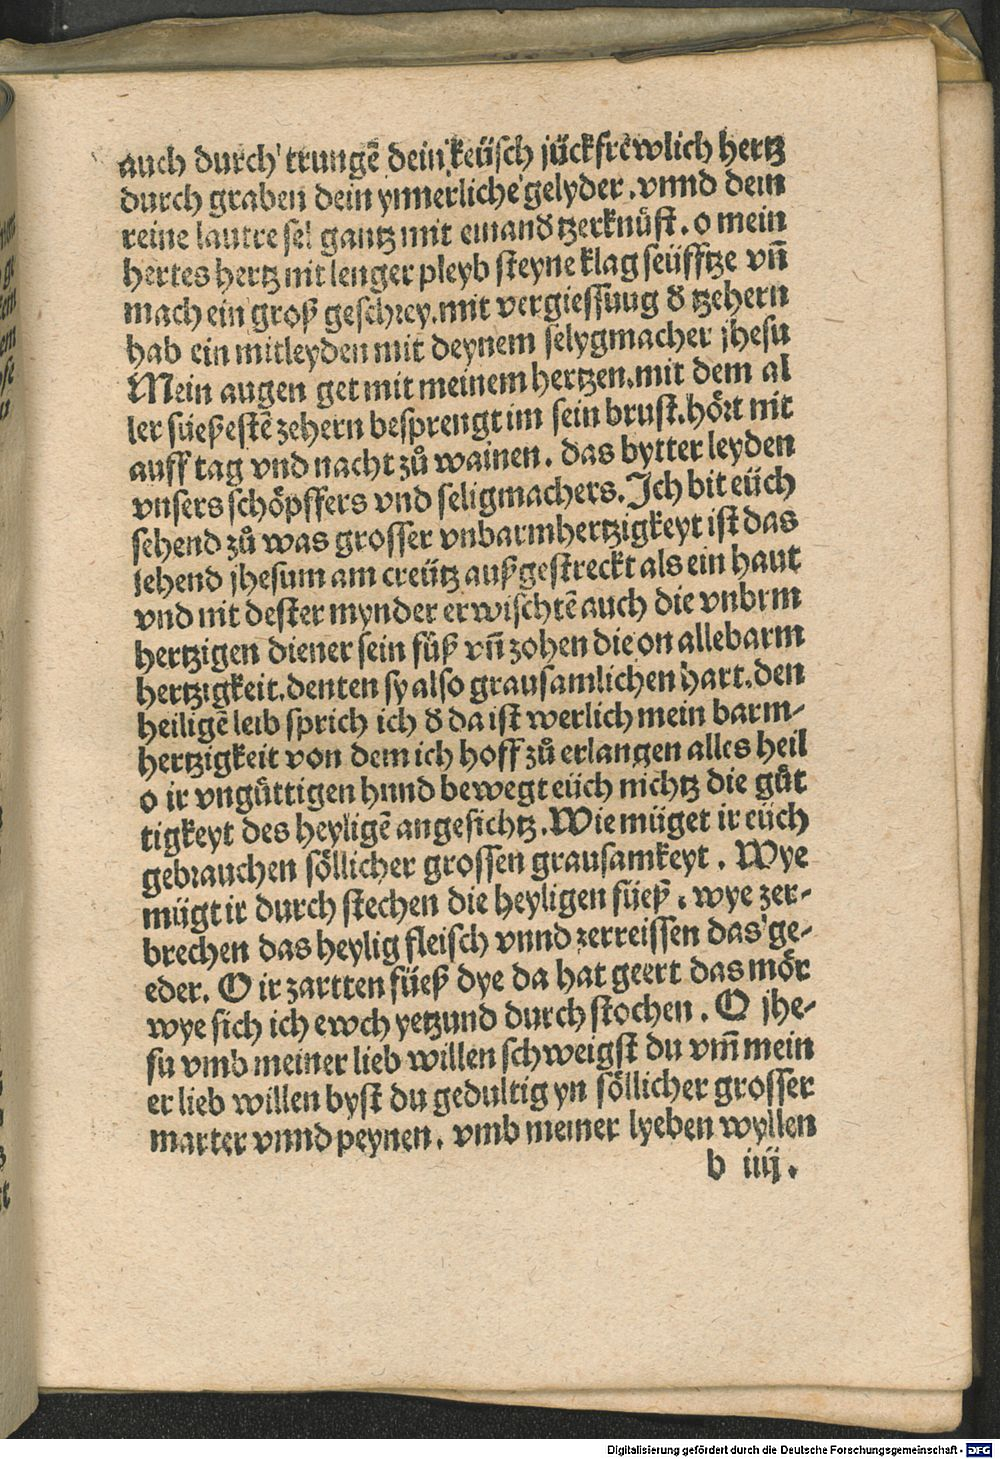 auch durch trungē dein keüsch jückfrewlich hertz
durch graben dein ynnerliche gelyder. vnnd dein
reine lautre sel gantz mit einandꝺ tzerknüst. o mein
hertes hertz nit lenger pleyb steyne klag seüfftze vn̄
mach ein groß geschrey. mit vergiessuug ꝺ tzehern
hab ein mitleyden mit deynem selygmacher jhesu
Mein augen get mit meinem hertzen. mit dem al
ler süeßestē zehern besprengt im sein brust. hört nit
auff tag vnd nacht zů wainen. das bytter leyden
vnsers schöpffers vnd seligmachers. Ich bit eüch
sehend zů was grosser vnbarmhertzigkeyt ist das
sehend jhesum am creütz außgestreckt als ein haut
vnd nit dester mynder erwischtē auch die vnbrm
hertzigen diener sein füß vn̄ zohen die on alle barm
hertzigkeit. denten sy also grausamlichen hart. den
heiligē leib sprich ich ꝺ da ist werlich mein barm-
hertzigkeit von dem ich hoff zů erlangen alles heil
o ir vngüttigen hund bewegt eüch nichtz die güt
tigkeyt des heyligē angesichtz. Wie müget ir eüch
gebrauchen söllicher grossen grausamkeyt. Wye
mügt ir durch stechen die heyligen füeß. wye zer-
brechen das heylig fleisch vnnd zerreissen das ge-
eder. O ir zartten füeß dye da hat geert das mör
wye sich ich ewch yetzund durch stochen. O jhe-
su vmb meiner lieb willen schweigst du vm̄ mein
er lieb willen byst du gedultig yn söllicher grosser
marter vnnd peynen. vmb meiner lyeben wyllen
b iiij.
Digitalisierung gefördert durch die Deutsche Forschungsgemeinschaft - DFG